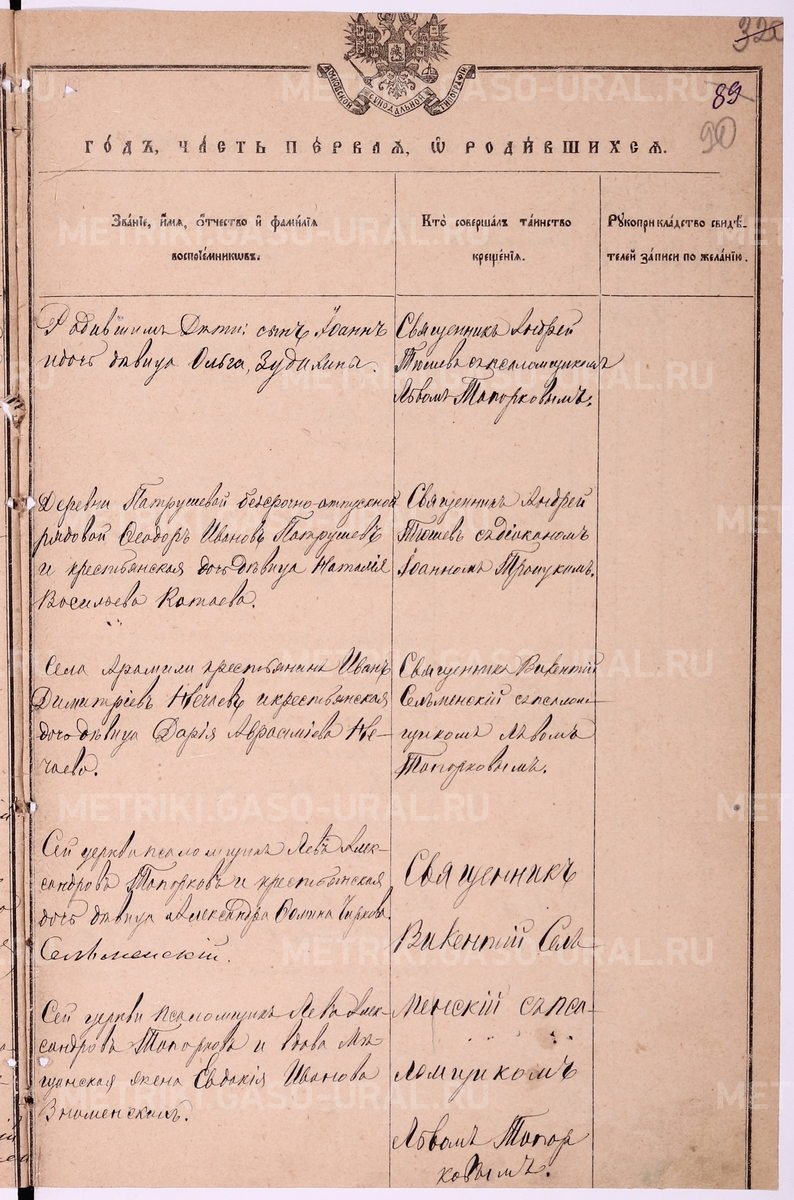 320
89
90
МОСКОВСКОЙ СѴНОДАЛЬНОЙ ТИПОГРАФІИ
ГОДЪ, ЧАСТЬ ПЕРВАЯ, Ѡ РОДИВШИХСЯ.
Званіе, имя, отчество и фамилія воспріемниковъ.
Кто совершалъ таинство крещенія.
Рукоприкладство свидѣтелей записи по желанію.
Дѣти: сынъ Іоаннъ
и дочь дѣвица Ольга,
Священникъ Андрей
Тюшевъ съ псаломщикомъ
Львомъ Топорковымъ.
Деревни Патрушевой безсрочно-отпускной
рядовой Ѳеодоръ Ивановъ Патрушевъ
и крестьянская дочь дѣвица Наталія
Васильева Катаева.
Священникъ Андрей
Тюшевъ съ діакономъ
Іоанномъ Троицкимъ.
Села Арамили крестьянинъ Иванъ
Димитріевъ Нечаевъ и крестьянская
дочь дѣвица Дарія Аврамиіева Не-
чаева.
Священникъ Викентій
Сельменскій съ псалом-
щикомъ Львомъ
Топорковымъ.
Сей церкви псаломщикъ Левъ Алек-
сандровъ Топорковъ и крестьянская
дочь дѣвица Александра Ѳомина
Сельменскій.
Священникъ
Викентій Сель-
менскій съ пса-
ломщикомъ
Львомъ Топор
ковымъ.
Сей церкви псаломщикъ Левъ Алек-
сандровъ Топорковъ и вдова Мѣ-
щанская жена Евдокія Иванова
Знаменскихъ.
METRIKI.GASO-URAL.RU